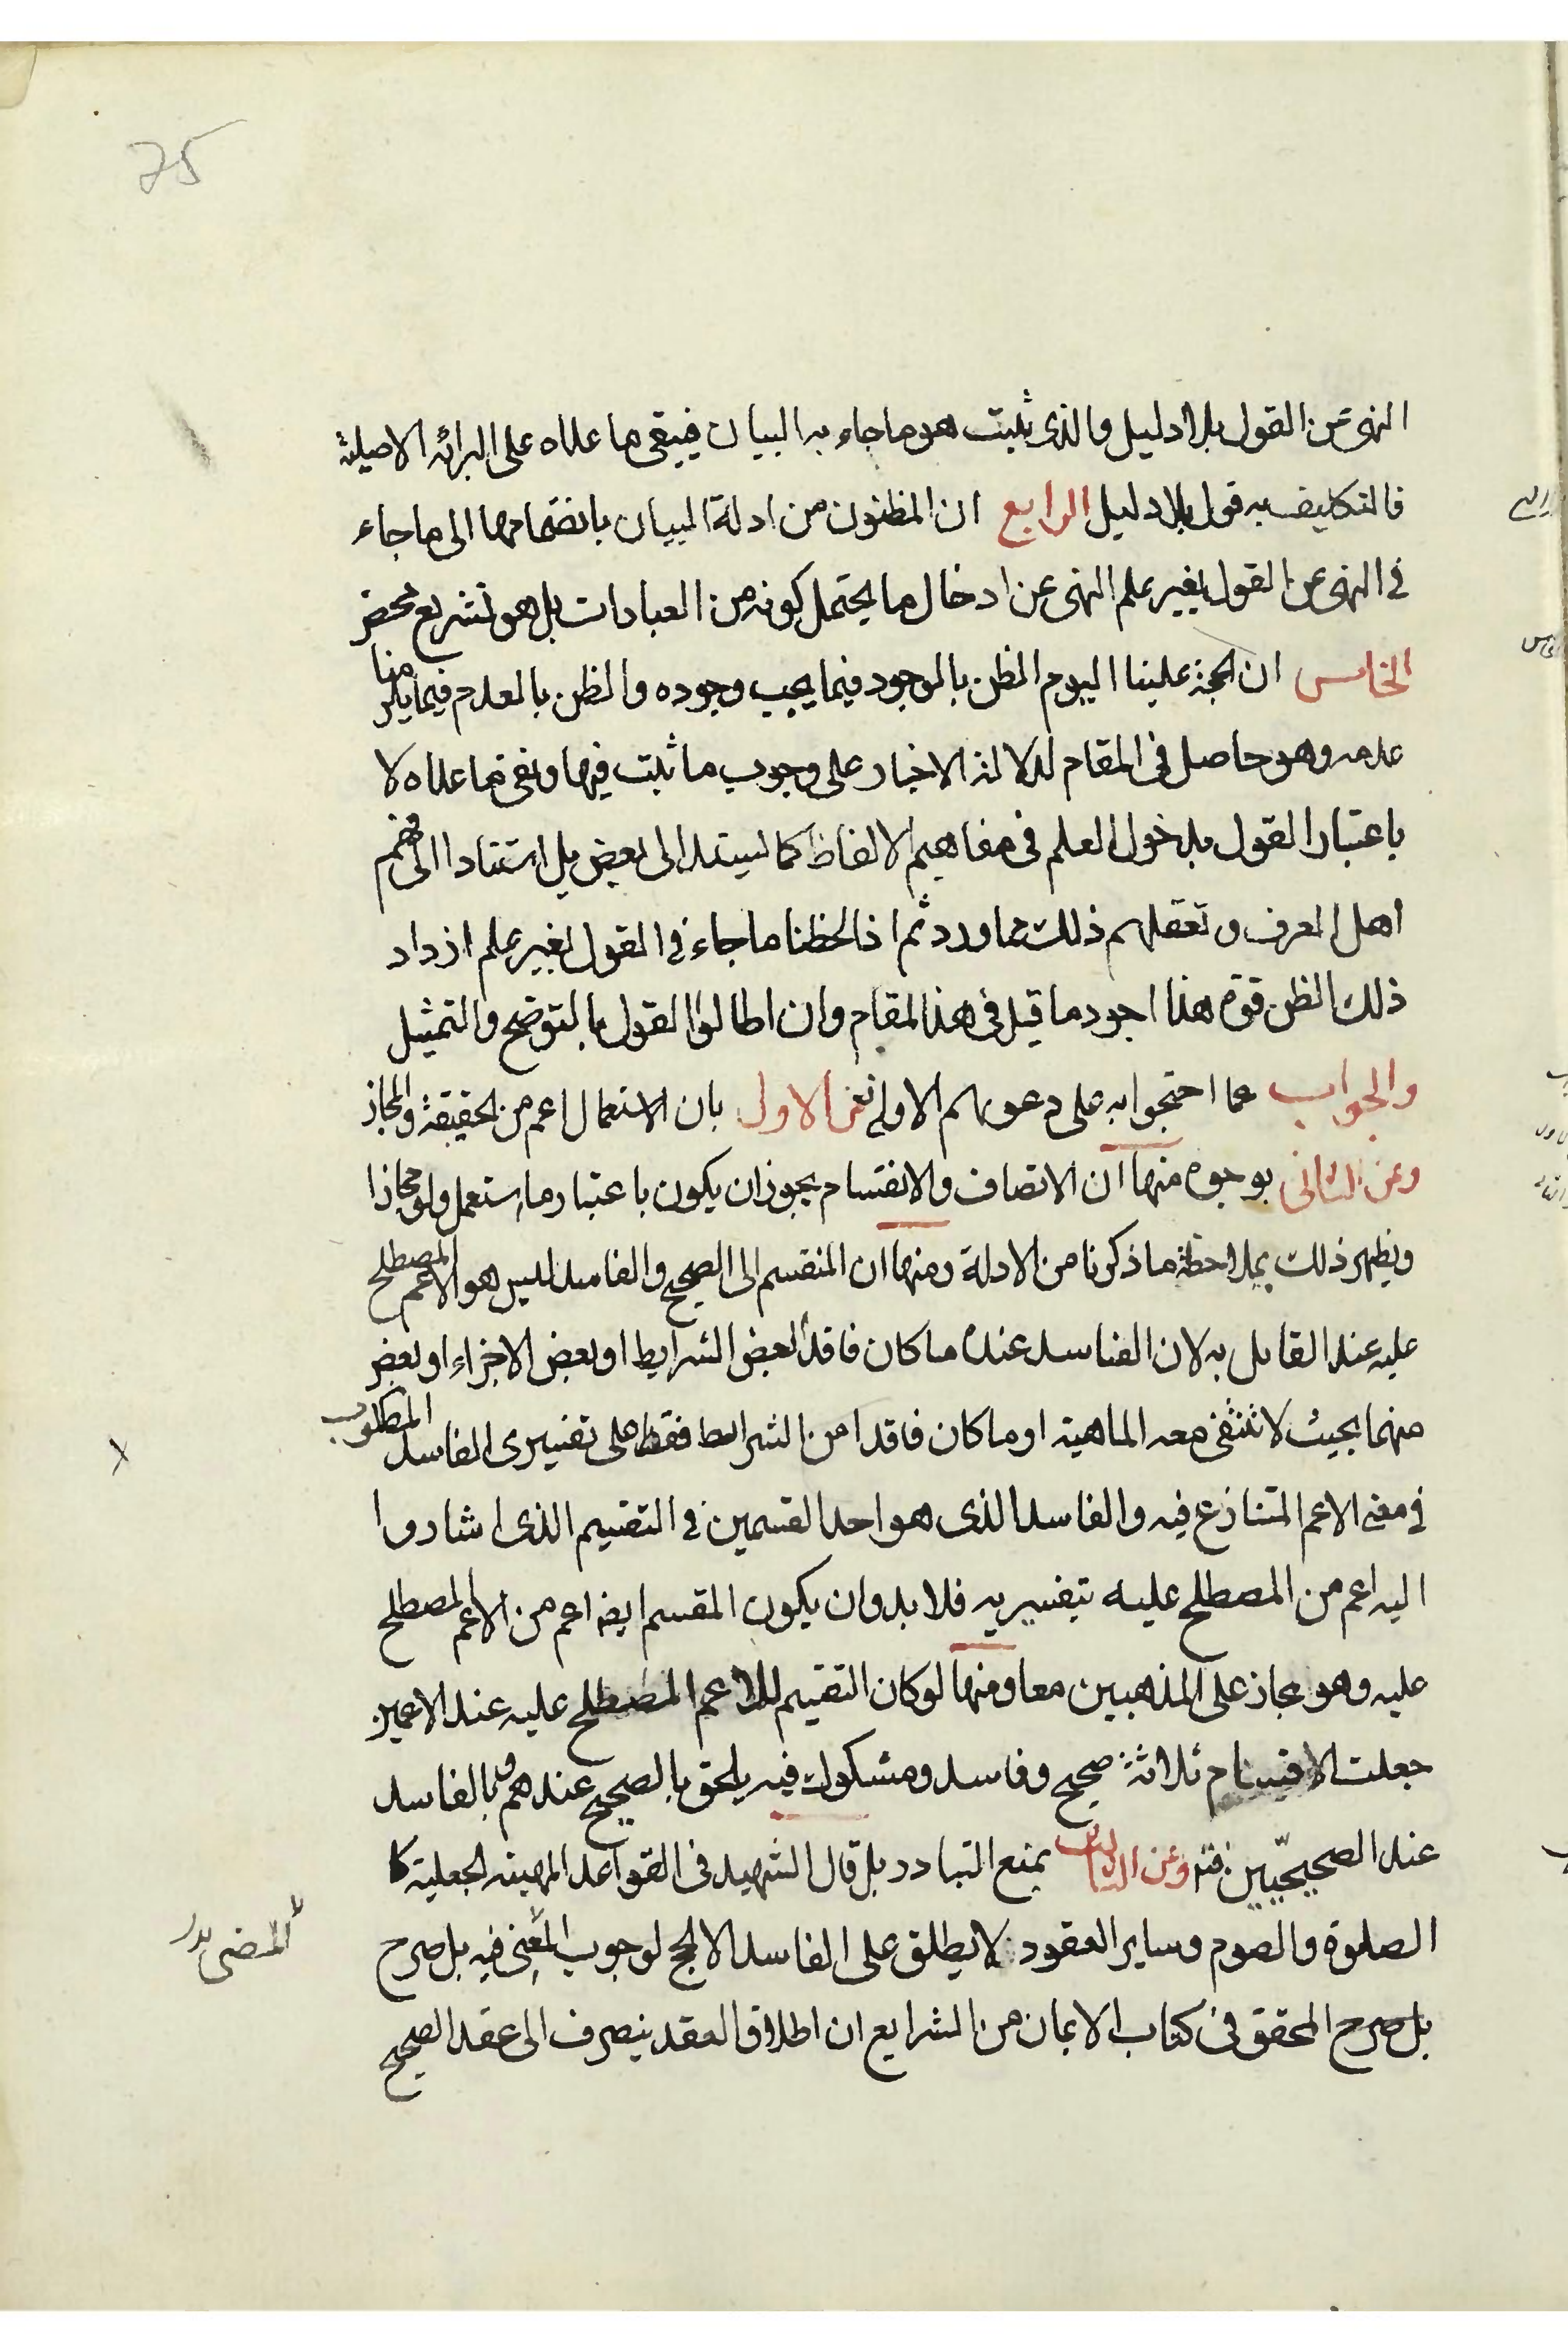 75
النهى عن القول بلا دليل والذى ثبت هو ما جاء به البيان فيبقى ما علاه على البرائه الاصلية
فالتكليف به قول بلا دليل الرابع ان المظنون من ادلة البيان بانضمامها الى ما جاء
في النهى عن القول بغير علم النهى عن ادخال ما يحتمل كونه من العبادات بل هو تشريع محض
الخامس ان الحجة علينا اليوم الظن بالوجود فيما يجب وجوده والظن بالعدم فيما يلزمنا
عدمه وهو حاصل فى المقام لدلالة الاخبار على وجوب ما ثبت فيها ونفى ما عداه لا
باعتبار القول بدخول العلم فى مفاهيم الالفاظ كما ليستدل الى بعض بل استنادا الى فهم
اهل العرف وتعقلهم ذلك مما ورد ثم اذا لحظنا ما جاء في القول بغير علم ازداد
ذلك الظن قوة هذا اجود ما قيل فى هذا المقام وان اطالوا القول بالتوضيح والتمثيل
والجواب عما احتجوا به على دعويهم الاولى فعن الاول بان الاستعمال اعم من الحقيقة والمجاز
وعن الثانى بوجوه منها ان الاتصاف والانقسام يجوز ان يكون باعتبار ما استعمل ولو مجازا
ويظهر ذلك بملاحظة ما ذكرنا من الادلة ومنها ان المنقسم الى الصحيح والفاسد ليس هو الاعم المصطلح
عليه عند القايل به لان الفاسد عنده ما كان فاقد البعض الشرايط او بعض الاجزاء او بعض
منهما بحيث لا تنتفى معه الماهية او ما كان فاقدا من الشرايط فقط على تفسيرى الفاسد المطلوب
في معنى الاعم المتنازع فيه والفاسد الذى هو احد القسمين في التقسيم الذى اشاروا
اليه اعم من المصطلح عليه بتفسيريه فلا بد وان يكون المقسم ايضا اعم من الاعم المصطلح
عليه وهو مجاز على المذهبين معا ومنها لو كان التقسيم للاعم المصطلح عليه عند الاعميين
جعلت الاقسام ثلاثة صحيح وفاسد ومشكوك فيه يلحق بالصحيح عندهم وبالفاسد
عند الصحيحيّين فتم وعن الثالث بمنع التبادر بل قال الشهيد فى القواعد المهية الجعلية كا
الصلوة والصوم وساير العقود لا يطلق على الفاسد الا الحج لوجوب المضى فيه بل صرح
بل صرح المحقق فى كتاب الايمان من الشرايع ان اطلاق العقد ينصرف الى عقد الصحيح
المضى